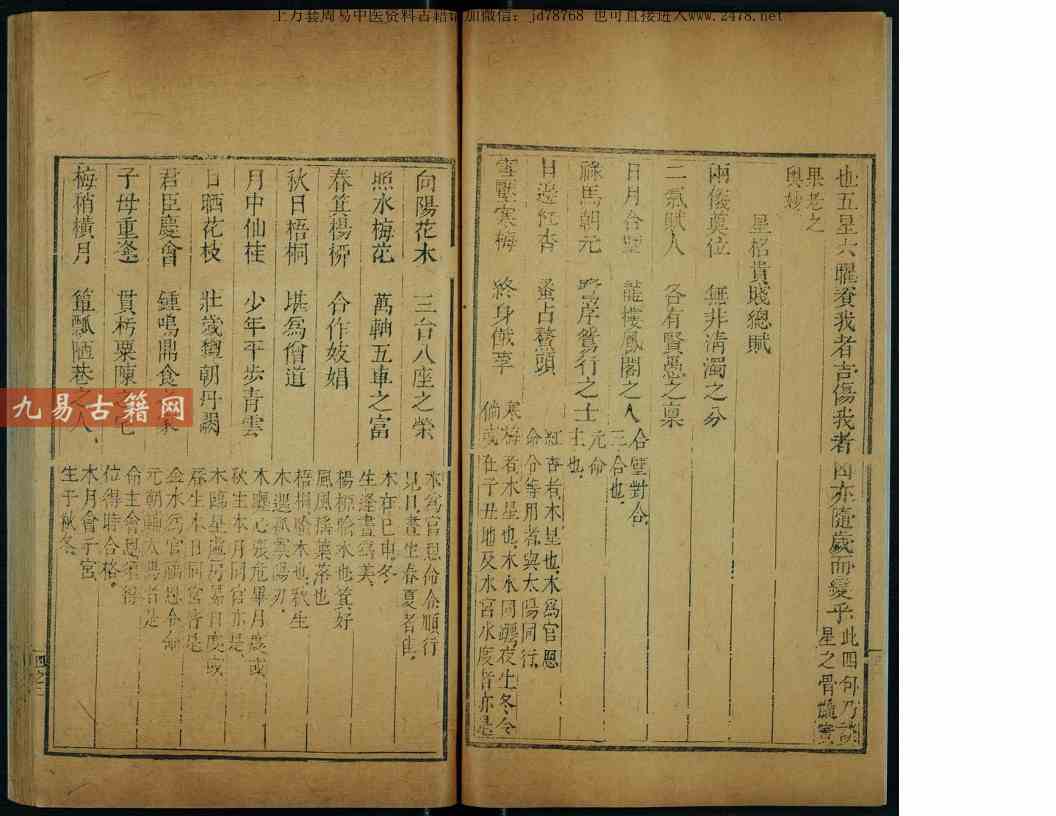 上万套周易中医资料古籍请加微信：jd78768 也可直接进入www.2478.net
九易古籍网
也五星六曜養我者吉傷我者凶亦隨歲而變乎 此四句乃談星之骨髓實
果老之奧妙
星格貴賤總賦
兩儀奠位 無非清濁之分
二氣賦人 各有賢愚之稟
日月合璧 龍樓鳳閣之人 合璧對合三合也
祿馬朝元 鴛行之士 元命主也
日邊紅杏 蚤占鰲頭 紅杏者木星也木為官恩命分等用者與太陽同行
雪壓寒梅 終身 寒梅者木星也木水同躔夜生冬令倘或在子丑地及水宮水度者亦是
向陽花木 三台八座之榮 木為官恩命令順行見日晝生春夏者
照水梅花 萬軸五車之富 木在巳申冬生逢晝為美
春箕楊柳 合作妓娼 楊柳喻木也箕好風風搖葉落也
秋日梧桐 堪為僧道 梧桐喻木也秋生木遇孤寡陽刃
月中仙桂 少年平步青雲 木躔心張危畢月度或秋生木月同宮亦是
日晒花枝 壯歲 朝丹闕 木臨星虛房昴日度或春生木日同宮
君臣慶會 鍾鳴鼎食 金水為官福恩令命元朝
子母重逢 貫朽粟陳 命主會恩 得位得時合格
梅稍橫月 簞瓢陋巷之人 木月會子宮生于秋冬